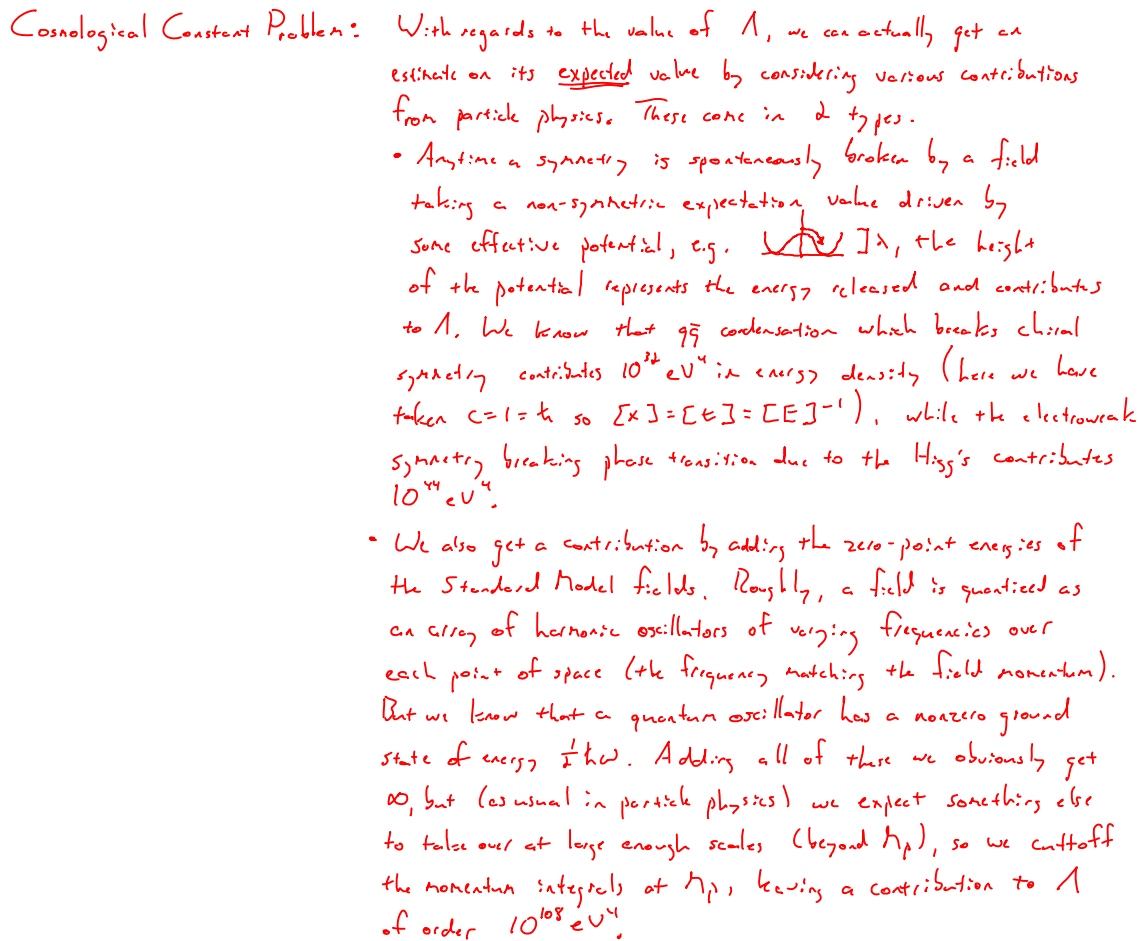 Cosmological Constant Problem: With regards to the value of Λ, we can actually get an
estimate on its expected value by considering various contributions
from particle physics. These come in 2 types.
• Anytime a symmetry is spontaneously broken by a field
taking a non-symmetric expectation value driven by
some effective potential, e.g. ]λ, the height
of the potential represents the energy released and contributes
to Λ. We know that qq̄ condensation which breaks chiral
symmetry contributes 10³² eV⁴ in energy density (here we have
taken c=1=ħ so [x]=[t]=[E]⁻¹), while the electroweak
symmetry breaking phase transition due to the Higg's contributes
10⁴⁴ eV⁴.
• We also get a contribution by adding the zero-point energies of
the Standard Model fields. Roughly, a field is quantized as
an array of harmonic oscillators of varying frequencies over
each point of space (the frequency matching the field momentum).
But we know that a quantum oscillator has a nonzero ground
state of energy ½ħω. Adding all of these we obviously get
∞, but (as usual in particle physics) we expect something else
to take over at large enough scales (beyond Mₚ), so we cuttoff
the momentum integrals at Mₚ, leaving a contribution to Λ
of order 10¹⁰⁸ eV⁴.